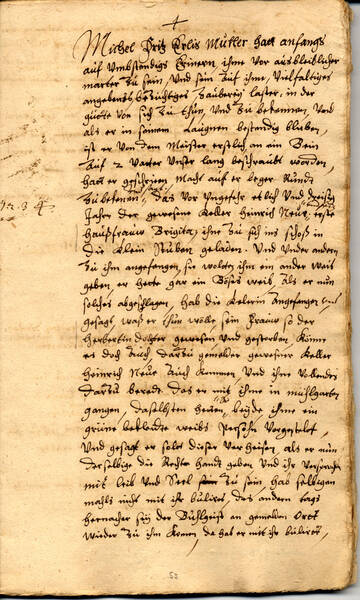 Michel Fritz Erlis Müller hatt anfangs
auf Umbständigs Erinern, ihme vor ausbleiblicher
marter zu sein, und sein auf ihme, Vielfaltiges
angebens bezüchtiges zauberey laster, in der
güette von sich zu thun, und zu bekennen, Und
als er in seinem Laugnen bestendig blieben,
ist er von dem Meister erstlich an ein Bein
auf 2 Vatter Unser lang beschraubt worden,
hatt er geschrien Macht auf er leger Kundt
zu bekenen, das vor Ungefehr etlich und dreissig
Jahr der gewesene Keller Heinrich Neue
haußfrauw Brigita, ihne zu sich ins schoß in
die Klein Stuben geladen. Und Under andern
zu ihm angefangen, sie wolten ihm ein ander weib
geben er hette gar ein Böses weib, Als er nun
solches abgeschlagen, hab die Kelerin angefangen und
gesagt, waß er thun wölle sein frauw so der
dochter gewesen und gestorben, Könne
es doch auch, darzu gemelter gewesener Keller
Heinrich Neue auch kummen Und ihne Vollendes
darzu beredt das er mit ihme in mühlgarten
gangen, daselbsten hetten, beyde ihme ein
grüne bekleidte weibs Persohn Vorgestelt,
Und gesagt er solt dieser Verheisen, als er nun
derselbige die Rechte Handt geben Und ihr Versprochen
mit leib Und Seel zu sein hab selbigen
mahls nicht mit ihr bulirt, des andern tags
hernacher sey der Buhlgeist an gemelten Ortt
wieder zu ihm Komen, da hat er mit ihr buliret,
52